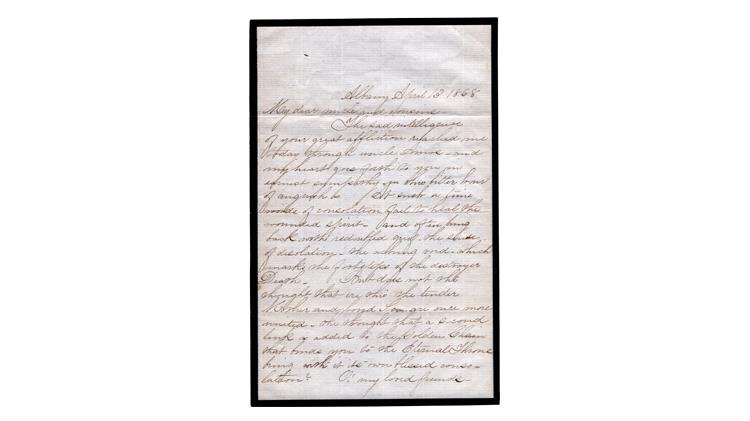 Albany April 13 1868
My dear uncle and cousins
The sad intelligence
of your great affliction reached me
today through uncle - and
my heart goes forth to you in
earnest sympathy in this bitter hour
of anguish At such a time
words of consolation fail to heal the
wounded spirit - and often bring
back with redoubled grief the sense
of desolation - the aching void - which
marks the footsteps of the destroyer
Death - But does not the
thought that ere this the tender
Mother and loved Son are once more
united - the thought that a second
link is added to the Golden Chain
that binds you to the Eternal Throne
bring with it its own blessed conso-
lation? O! my loved friends -